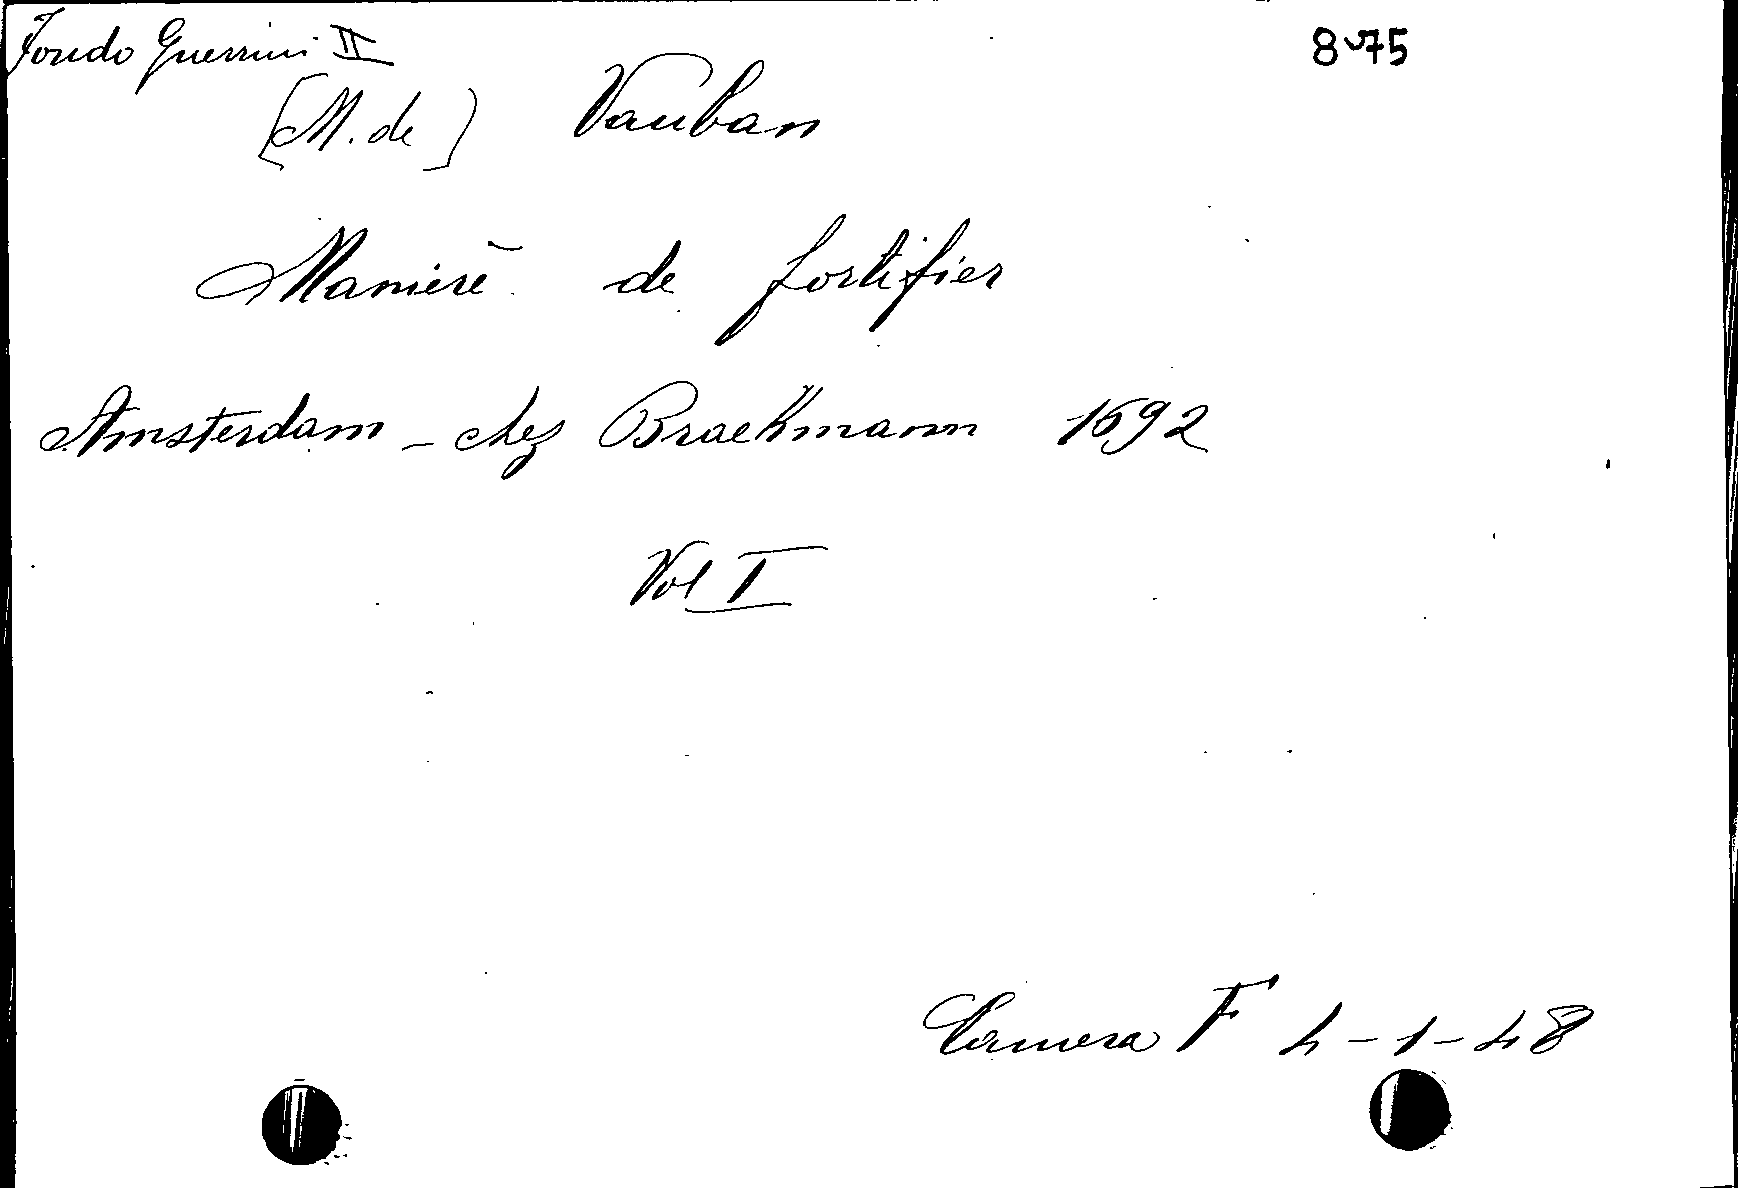 Fondo Guerrini II
8475
[M. de] Vauban
Manierè de fortifier
Amsterdam - chez Braekmann 1692
Vol I
Camera F 4-1-48